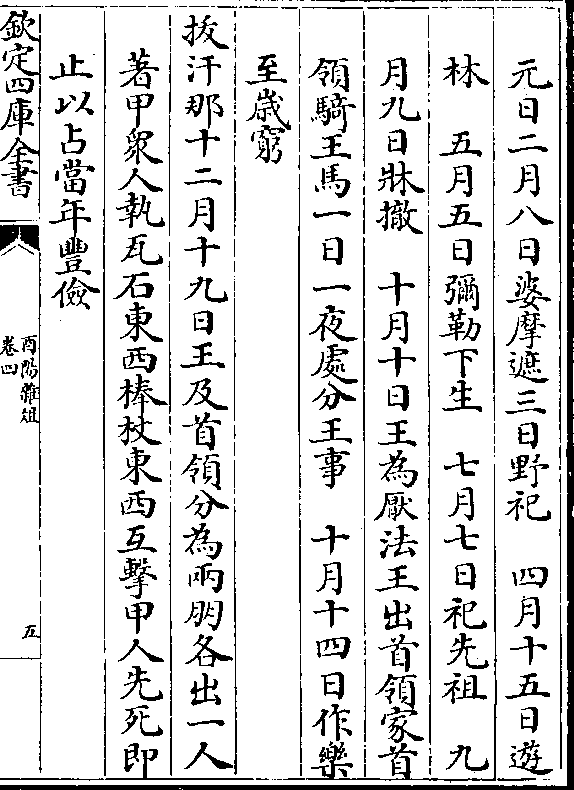 元日二月八日婆摩遮三日野祀　四月十五日遊
林　五月五日彌勒下生　七月七日祀先祖　九
月九日牀撤　十月十日王為厭法王出首領家首
領騎王馬一日一夜處分王事　十月十四日作樂
至歳窮
拔汗那十二月十九日王及首領分為兩朋各出一人
著甲衆人執瓦石東西棒杖東西互擊甲人先死即
止以占當年豐儉
欽定四庫全書
酉陽雜俎
卷四
五